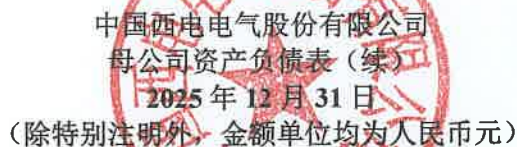 中国西电电气股份有限公司
母公司资产负债表（续）
2025 年 12 月 31 日
（除特别注明外，金额单位均为人民币元）